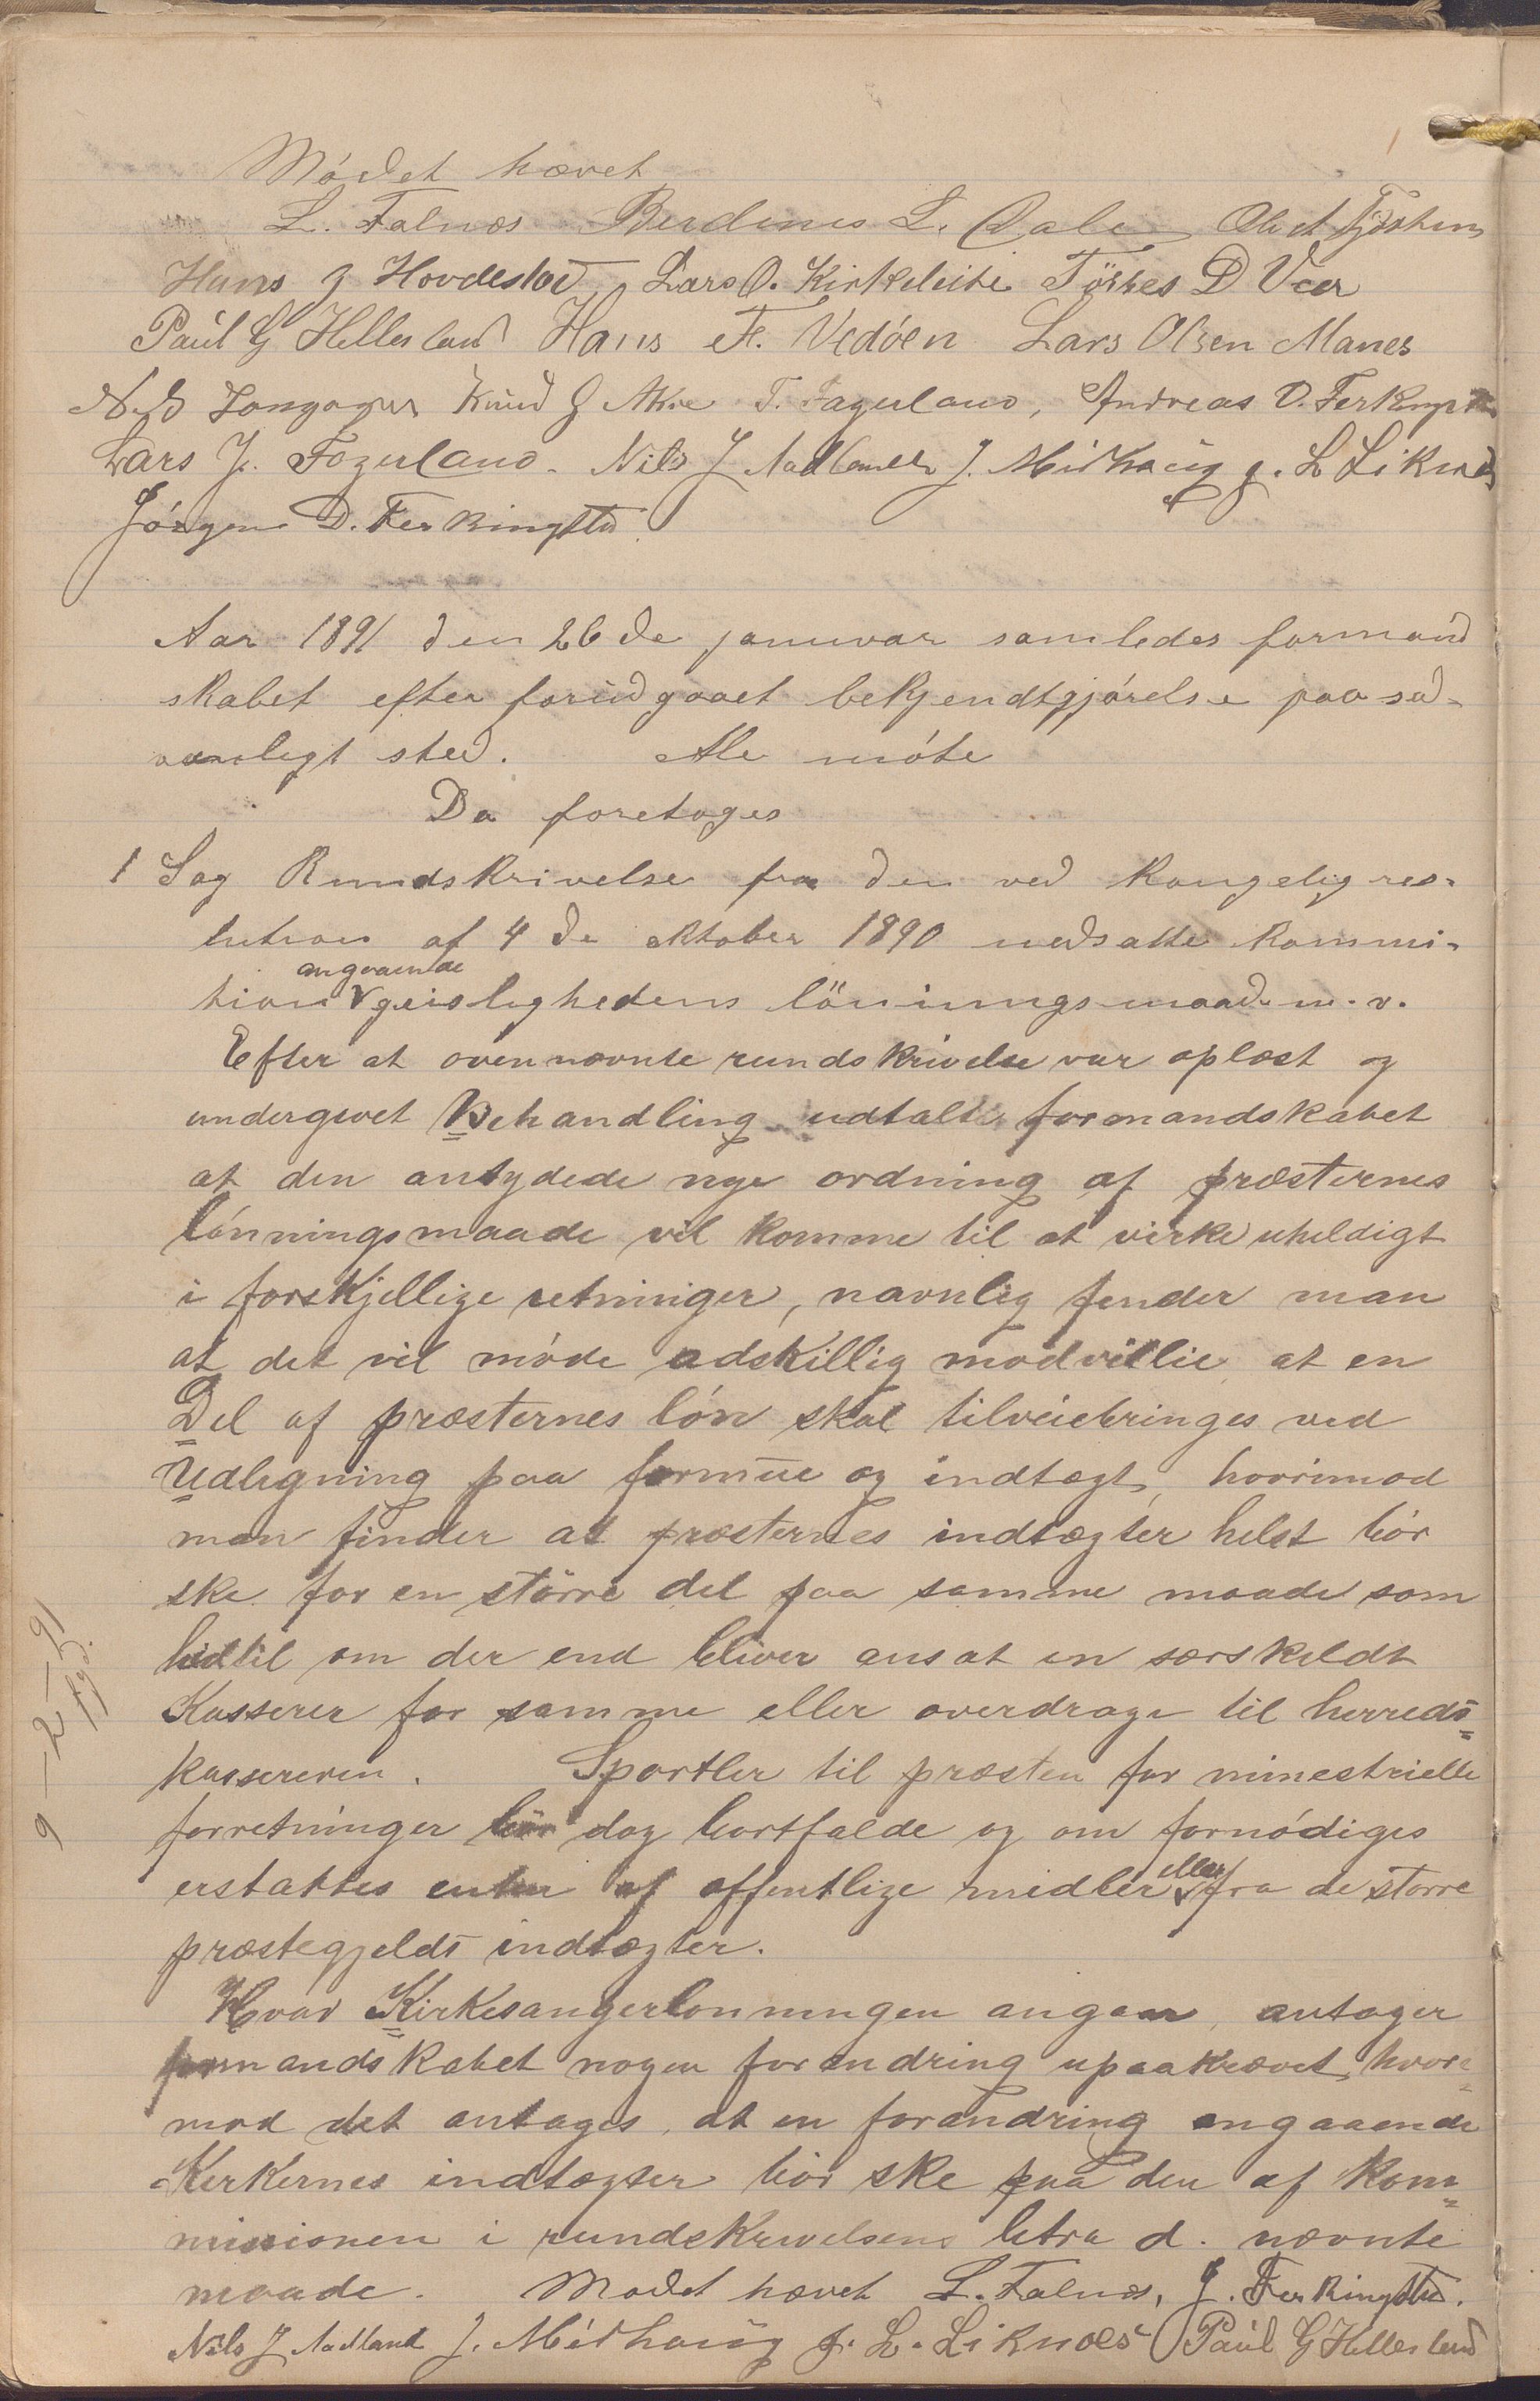 Mödet hævet
L. Falnæs Berdinus L. Dale Ole A Tjösheim
Hans J Hovdestad Lars O. Kirkeleite Törres D Veer
Paul G Hellesland Hans F. Vedöen Lars Olsen Manes
N. D Langager Knud J Akre T. Fagerland, Andreas D. Ferkingstad
Lars J. Fagerland. Nils J Aadland J. Midhaug J. L Liknæs
Jörgen D. Ferkingstad
Aar 1891 den 26de januar samledes formand
skabet efter forudgaaet bekjendtgjörelse paa sæd-
vanligt sted. Alle möte
Da foretoges
1 Sag Rundskrivelse fra den ved Kongelig res-
lution af 4de oktober 1890 nedsatte kommi-
tion angaaende geislighedens lönningsmaade m. v.
Efter at ovennævnte rundskrivelse var oplæst og
undergivet Behandling udtalte formandskabet
at den antydede nye ordning af præsternes
lönningsmaade vil komme til at virke uheldigt
i forskjellige retninger, navnlig finder man
at det vil möde adskillig modvillie at en
Del af præsternes lön skal tilveiebringes ved
Udligning paa formue og indtægt, hvorimod
man finder at præsternes indtægter helst bör
ske for en större del paa samme maade som
hidtil om der end bliver ansat en særskildt
Kasserer for samme eller overdrage til herreds-
kassereren. Sportler til præsten for minestrielle
forretninger bör dog bortfalde og om fornödiges
erstattes enten af offentlige midler eller fra de större
præstegjelds indtægter.
Hvad Kirkesangerlönningen angaar, antager
formandskabet nogen forandring upaakrævet, hvor-
mod det antages, at en forandring angaaende
Kirkernes indtægter bör ske paa den af kom-
missionen i rundskrivelsens litra d. nævnte
maade. Mödet hævet L. Falnæs, J. Ferkingstad.
Nils J Aadland J. Midhaug J. L. Liknæs Paul G Hellesland
9 – 2 – 91